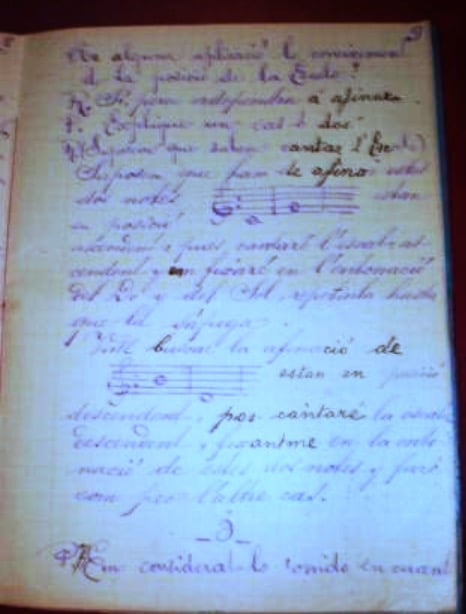 9
alguna aplicació l coneixement
de la posició de la Escala?
R. Si, pera a afinar.
P. Explique un cas ó dos.
R. que saben cantar l'Escala)
Suposem que fan de afinar estas
dos notes estan
en posició
ascendent, pues, cantaré l'escala as-
cendent y em fixaré en l'entonació
del Do y del Sol, repetinla hasta
que la sápiga.
buscar la afinació de
estan en posició
descendent, pos cantaré la escala
descendent, fixantme en la ento-
nació de estes dos notes y faré
com per l'altre cas.
_3_
Em considerat lo sonido en cuant